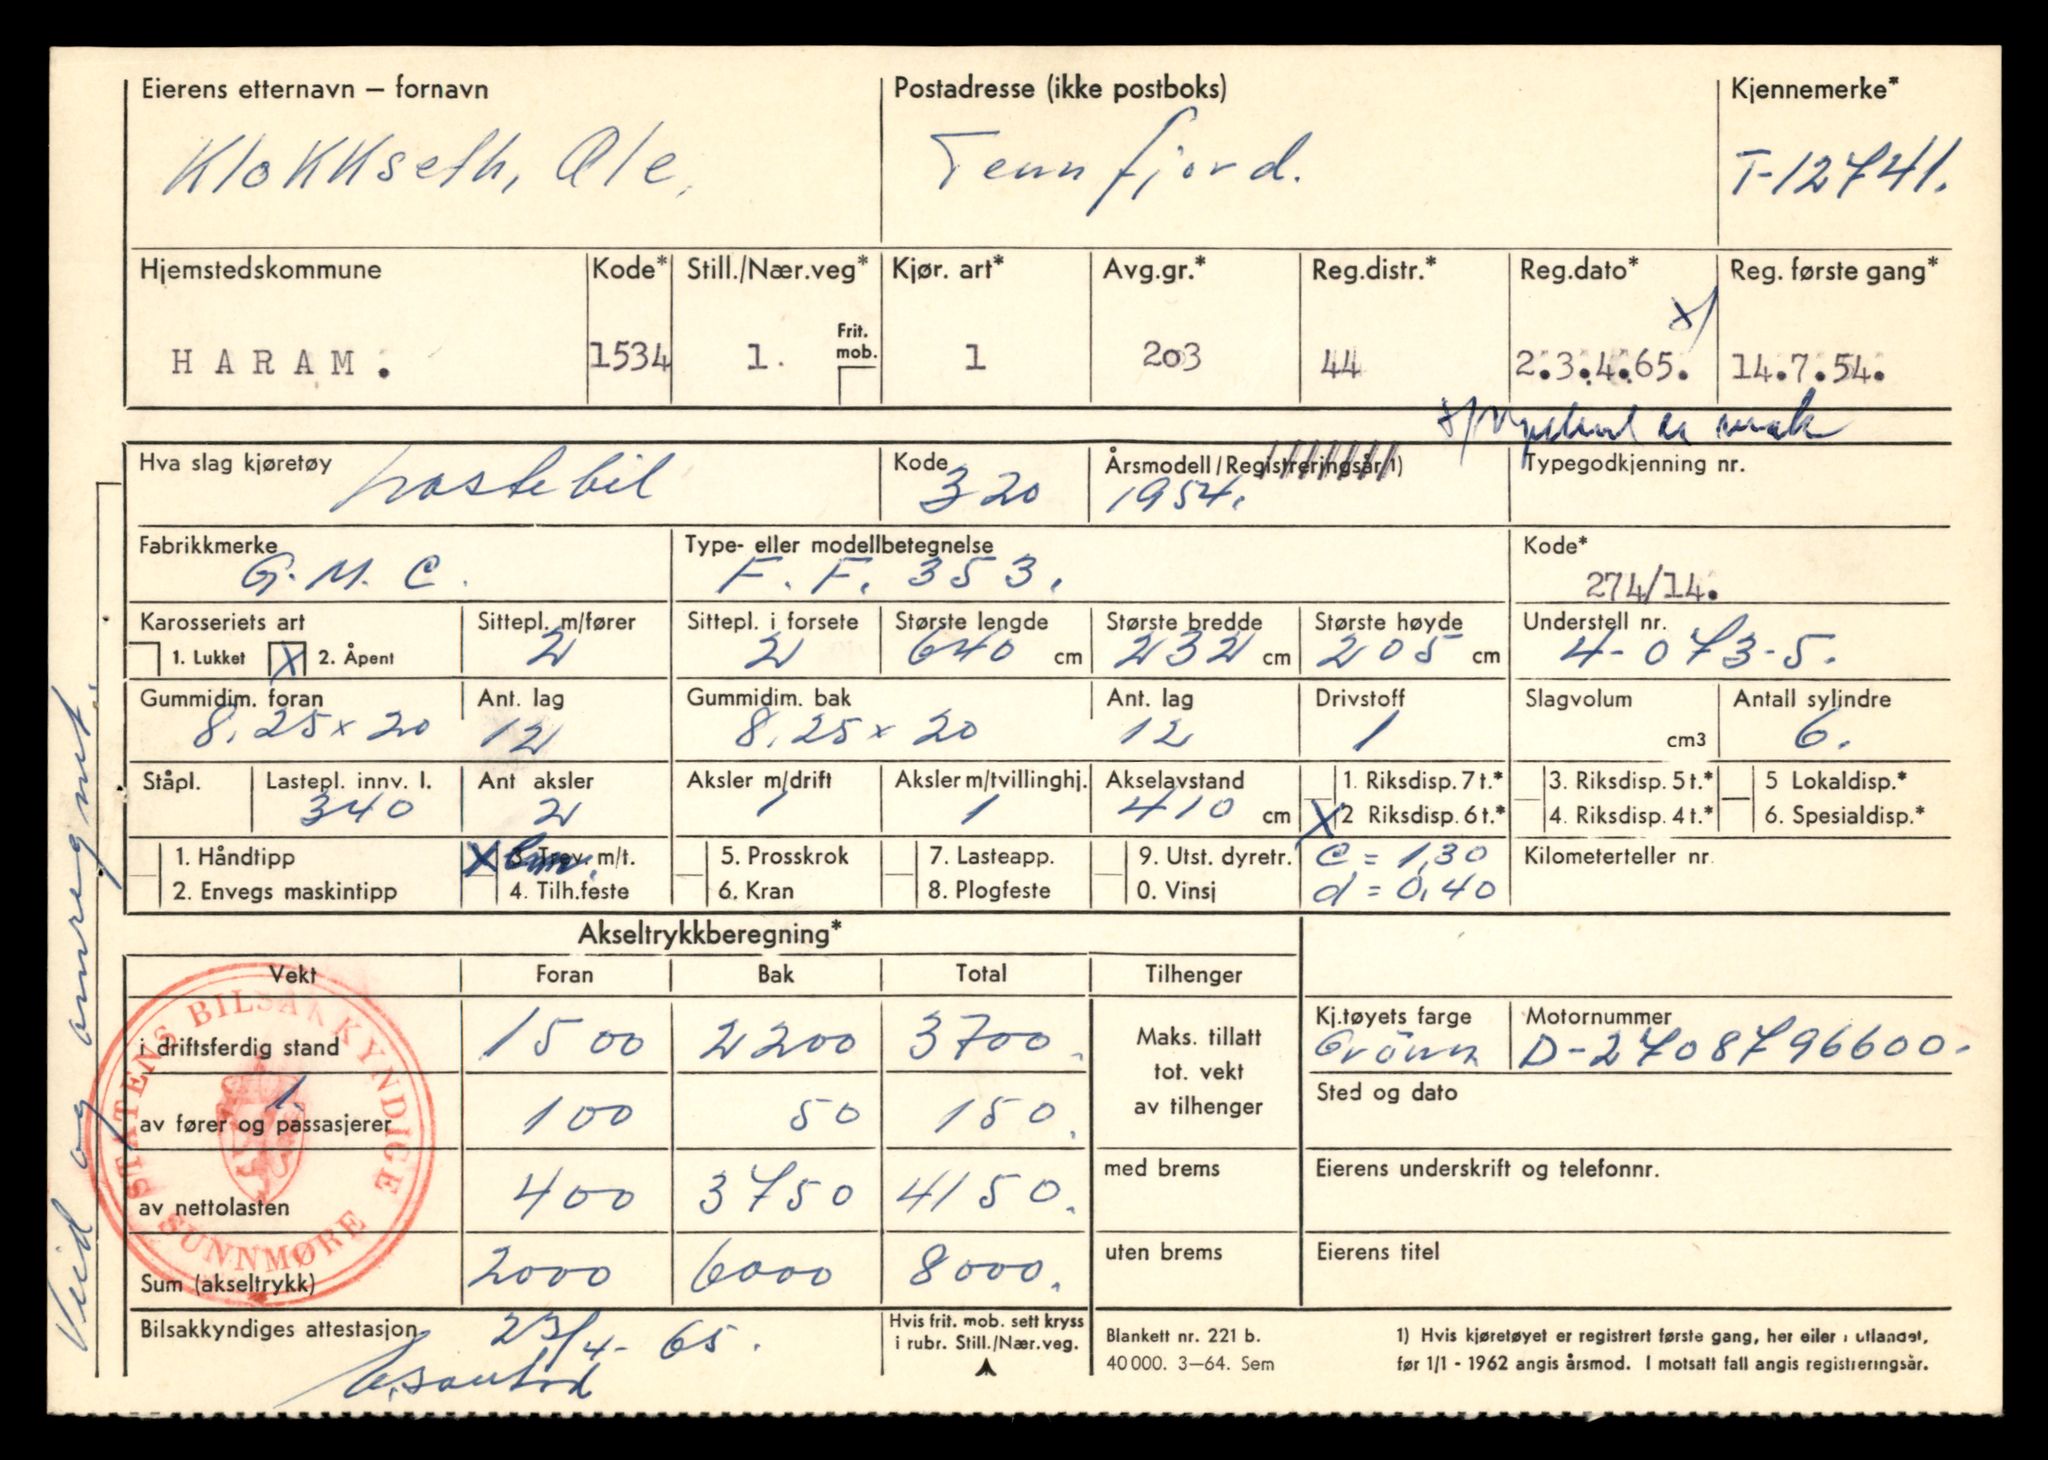 Eierens etternavn – fornavn
Klokkseth, Ole.
Postadresse (ikke postboks)
Tennfjord.
Kjennemerke*
T-12741.
Hjemstedskommune
HARAM.
Kode*
1534
Still./Nær.veg*
1.
Frit. mob.
Kjør. art*
1
Avg.gr.*
203
Reg.distr.*
44
Reg.dato*
2.3.4.65.
x/
Reg. første gang*
14.7.54.
x/
Hva slag kjøretøy
Lastebil
Kode
320
Årsmodell/Registreringsår 1)
1954.
Typegodkjenning nr.
Fabrikkmerke
G.M.C.
Type- eller modellbetegnelse
F.F. 353.
Kode*
274/14.
Karosseriets art
1. Lukket
X 2. Åpent
Sittepl. m/fører
2
Sittepl. i forsete
2
Største lengde
640 cm
Største bredde
232 cm
Største høyde
205 cm
Understell nr.
4-073-5.
Gummidim. foran
8.25 x 20
Ant. lag
12
Gummidim. bak
8.25 x 20
Ant. lag
12
Drivstoff
1
Slagvolum
cm3
Antall sylindre
6.
Ståpl.
Lastepl. innv. l.
340
Ant aksler
2
Aksler m/drift
1
Aksler m/tvillinghj.
1
Akselavstand
410 cm
1. Riksdisp. 7 t.*
X 2 Riksdisp. 6 t.*
3. Riksdisp. 5 t.*
4. Riksdisp. 4 t.*
5 Lokaldisp.*
6. Spesialdisp.*
1. Håndtipp
2. Envegs maskintipp
X 3 Trev. m/t.
4. Tilh.feste
5. Prosskrok
6. Kran
7. Lasteapp.
8. Plogfeste
9. Utst. dyretr.
0. Vinsj
c = 1,30
d = 0,40
Kilometerteller nr.
Akseltrykkberegning*
Vekt Foran Bak Total Tilhenger
i driftsferdig stand 1500 2200 3700.
av fører og 1. passasjerer 100 50 150.
av nettolasten 400 3750 4150.
Sum (akseltrykk) 2000 6000 8000.
Maks. tillatt
tot. vekt
av tilhenger
med brems
uten brems
Kj.tøyets farge
Grönn
Motornummer
D-2708796600.
Sted og dato
Eierens underskrift og telefonnr.
Eierens titel
Bilsakkyndiges attestasjon
23/4-65.
Hvis frit. mob. sett kryss
i rubr. Still./Nær.veg.
Blankett nr. 221 b.
40 000. 3–64. Sem
1) Hvis kjøretøyet er registrert første gang, her eller i utlandet,
før 1/1 - 1962 angis årsmod. I motsatt fall angis registreringsår.
Veid og omregnet.
STATENS BILSAKKYNDIGE
SUNNMØRE